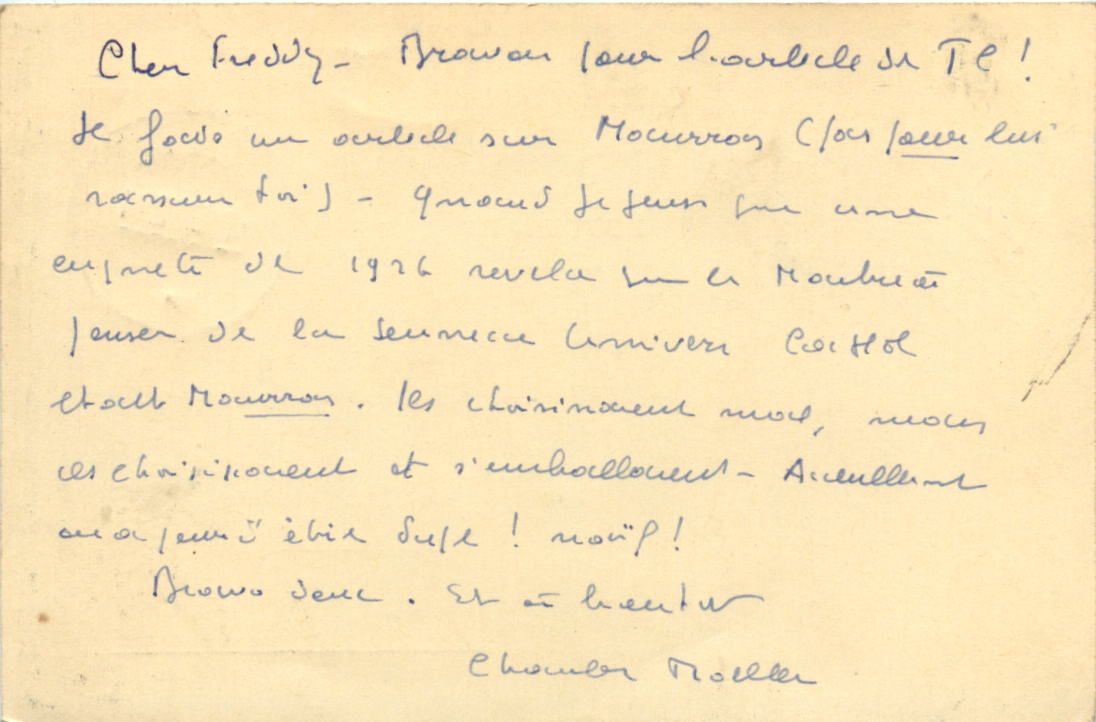 Cher Freddy – Bravo pour l'article de TC !
Je fais un article sur Maurras (pas pour lui
rassure toi) – Quand je pense que une
enquete de 1926 revela que le Maitre à
penser de la Jeunesse Univers Cathol
etait Maurras. Ils choisissaient mal, mais
ils choisissaient et s'emballaient – Actuellement
on a peur d'être dupe ! naïf !
Bravo donc. Et à bientot
Charles Moeller